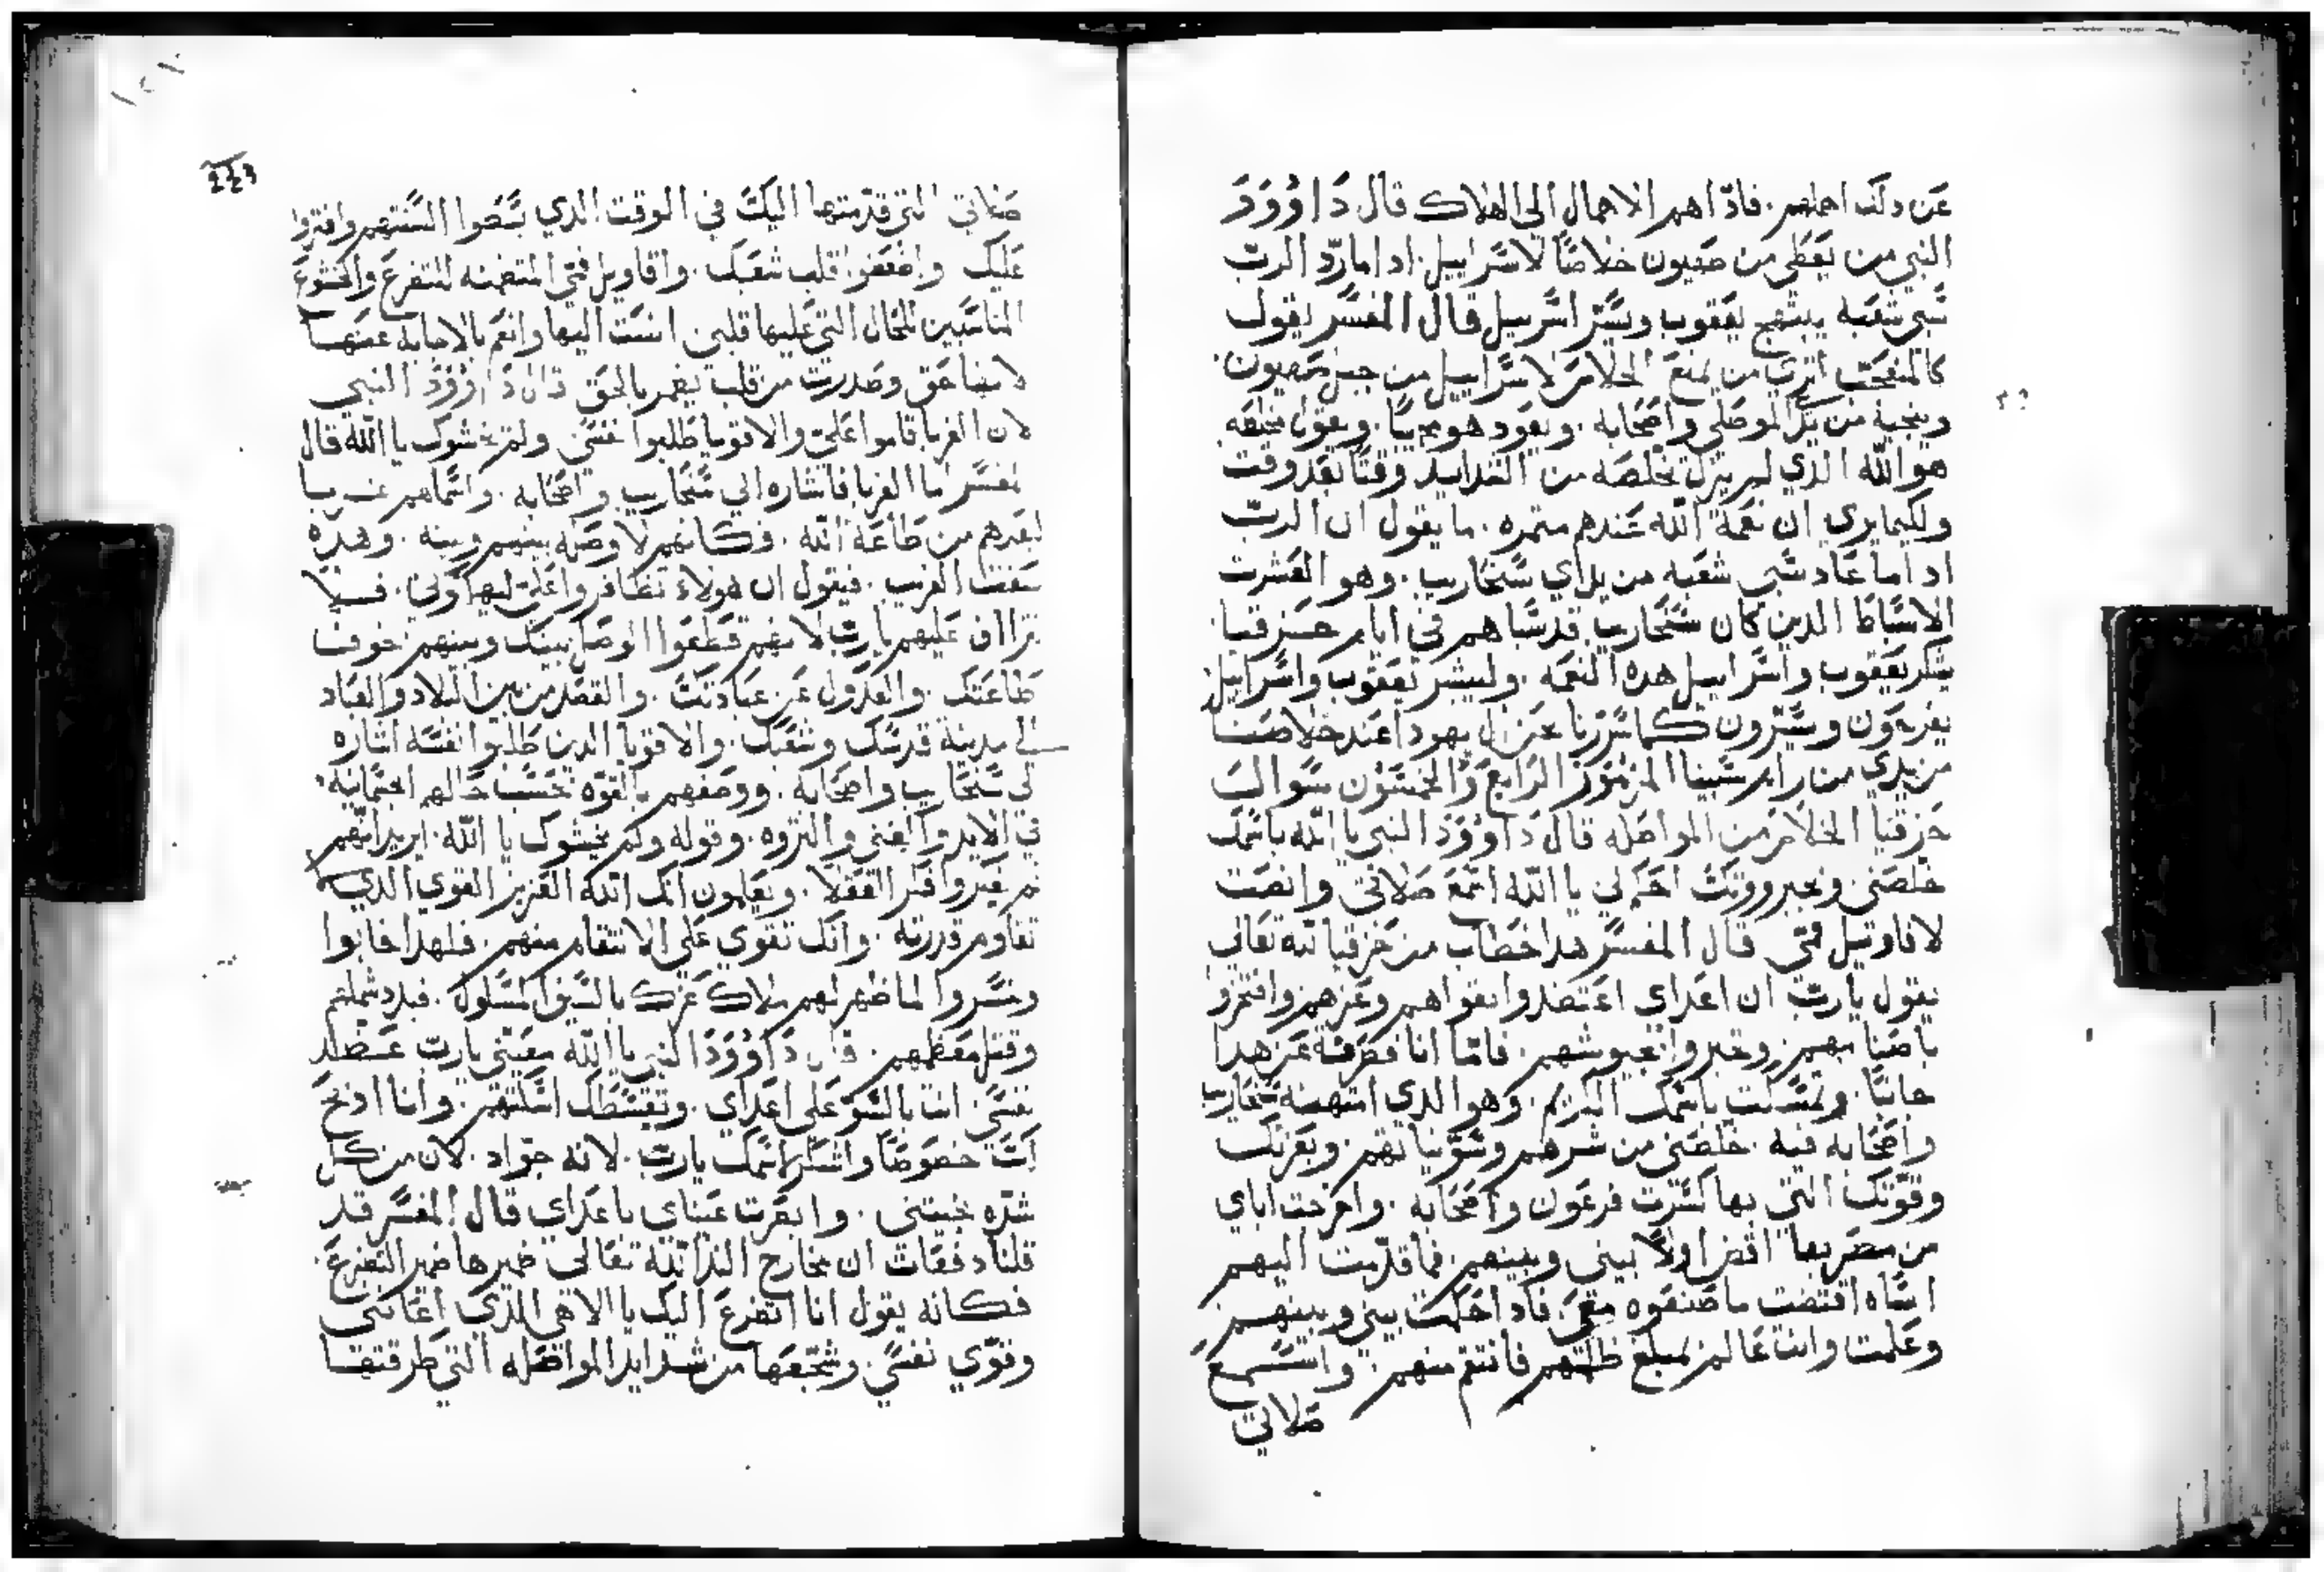 عن دلك اهملهم. فاذاهم الاهمال الى الهلاك قال داوود
النبي من يعطي من صهيون خلاصًا لاسراييل. ادا ما ردّ الربّ
سبي شعبه يبتهج يعقوب ويسرّ اسرييل قال المفسر يقول
كالمتعجب اترى من يمنع الخلاص لاسراييل من جبل صهيون.
وينجيه من يد الموصلي واصحابه. ويعود هو مجيبًا. ويقول مخلصه
هو الله الذي لم يزل يخلصه من الشدايد وقتًا بعد وقت
ولكيما يري ان نعمة الله عندهم مثمره. ما يقول ان الربّ
ادا ما عاد سبي شعبه من يداي سنحاريب. وهو العشرت
الاسباط الدين كان سنحاريب قد سباهم في ايام حزقيا.
يشكر يعقوب واسراييل هده النعمه. وليبشر يعقوب واسراييل
يفرحون ويسرّون كما سررنا نحن ال يهودا عند خلاصنا
من يدي من رام سبينا المزمور الرابع والخمسون سوال
حزقيا الخلاص من المواصله قال داوود النبي يا الله باسمك
خلصني وبجبروتك احكم لي يا الله اسمع صلاتي وانصت
لاقاويل فمي قال المفسر هدا خطاب من حزقيا لله تعالى
يقول يارب ان اعداي اعتضدوا بقواهم وعزهم وافتخروا
باصنامهم. وتجبروا بجيوشهم. فاما انا فصرفته عن هدا
جانبًا. وتمسكت باسمك الكريم. وهو الذي امتهنه سنحاريب
واصحابه فيه. خلصني من شرهم وسو نياتهم. وبعزتك
وقوتك التي بها كسرت فرعون واصحابه. واخرجت اباي
من مصر بها اقض اولًا بيني وبينهم. فما قدمت اليهم
اساه اقتضت ما صنعوه معي. فاد احكمت بيني وبينهم
وعلمت وانت عالم بمبلغ ظلمهم فانتقم منهم. واستمع
صلاتي
صلاتي التي قدمتها اليك في الوقت الذي بسطوا السنتهم وافتروا
عليك واضعفوا قلب شعبك. واقاويل فمي المتضمنه للتضرع والخشوع
المناسبين للحال التي عليها قلبي انصت اليها وانعم بالاجابه عنها
قلب يضمر بالحق قال داوود النبي
لان الغربا قاموا علي والاقويا طلبوا نفسي ولم يخشوك يا الله قال
المفسر اما الغربا فاشاره الي سنحاريب واصحابه. واسماهم غربا
لبعدهم من طاعة الله. فكانهم لا وصله بينهم وبينه. وهده
صفت الغريب. فيقول ان هولاء تظافروا علي ليهلكوني. فلا
تتراف عليهم يارب لانهم قطعوا الوصل بينك وبينهم خوفت
طاعتك. والعدول عن عبادتك. والقصد من بين البلاد والعباد
الي مدينة قدسك وشعبك. والاقويا الدين طلبوا نفسه اشاره
الي سنحاريب واصحابه. ووصفهم بالقوه بحسب حالهم الجسمانيه.
في الايد والغنى والثروه. وقوله ولم يخشوك يا الله. ايريد انهم
لم يفكروا فكر العقلا. ويعلمون انك الله العزيز القوي الذي لا
تقاوم قدرته. وانك تقوي على الانتقام منهم. فلهدا خابوا
وخسروا لما ظهر لهم ملاك عزك بالسيف المسلول. فبدد شملهم
وقتل معظمهم. قال داوود النبي يا الله معيني يارب عضد
نفسي. اتت بالسو على اعداي. وبقسطك اسكتهم. وانا ادبح
لك خصوصًا واشكر اسمك يارب. لانه جواد. لان من كل
شده نجيتني. وابصرت عيناي باعداي قال المفسر قد
قلنا دفعات ان مخارج الندا لله تعالى ضميرها ضمير التضرع.
فكانه يقول انا اتضرع اليك يا الاهي الذي اعانني
وقوّي نفسي. وشجعها من شدايد المواصله التي طرقتها